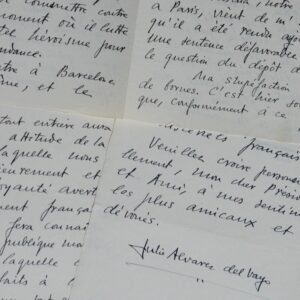 commettre contre
moment où il lutte
tel héroïsme pour
ndance.
ntre à Barcelone
ême, et le
à Paris, vient de m'
il a été rendu aujo
une sentence défavorable
le question du dépôt d
Ma stupéfaction
de bornes. C'est hier s
que, conformément à ce
tout entière aura
attitude de la
laquelle nous
ieurement et
oyauté avert
ment français
Fera connaî
publique mo
laquelle c
faits à l
français
Veuillez croire personne
llement, mon cher Présid
et Ami, à mes sentim
les plus amicaux et
dévoués.
Julio Alvarez del Vayo